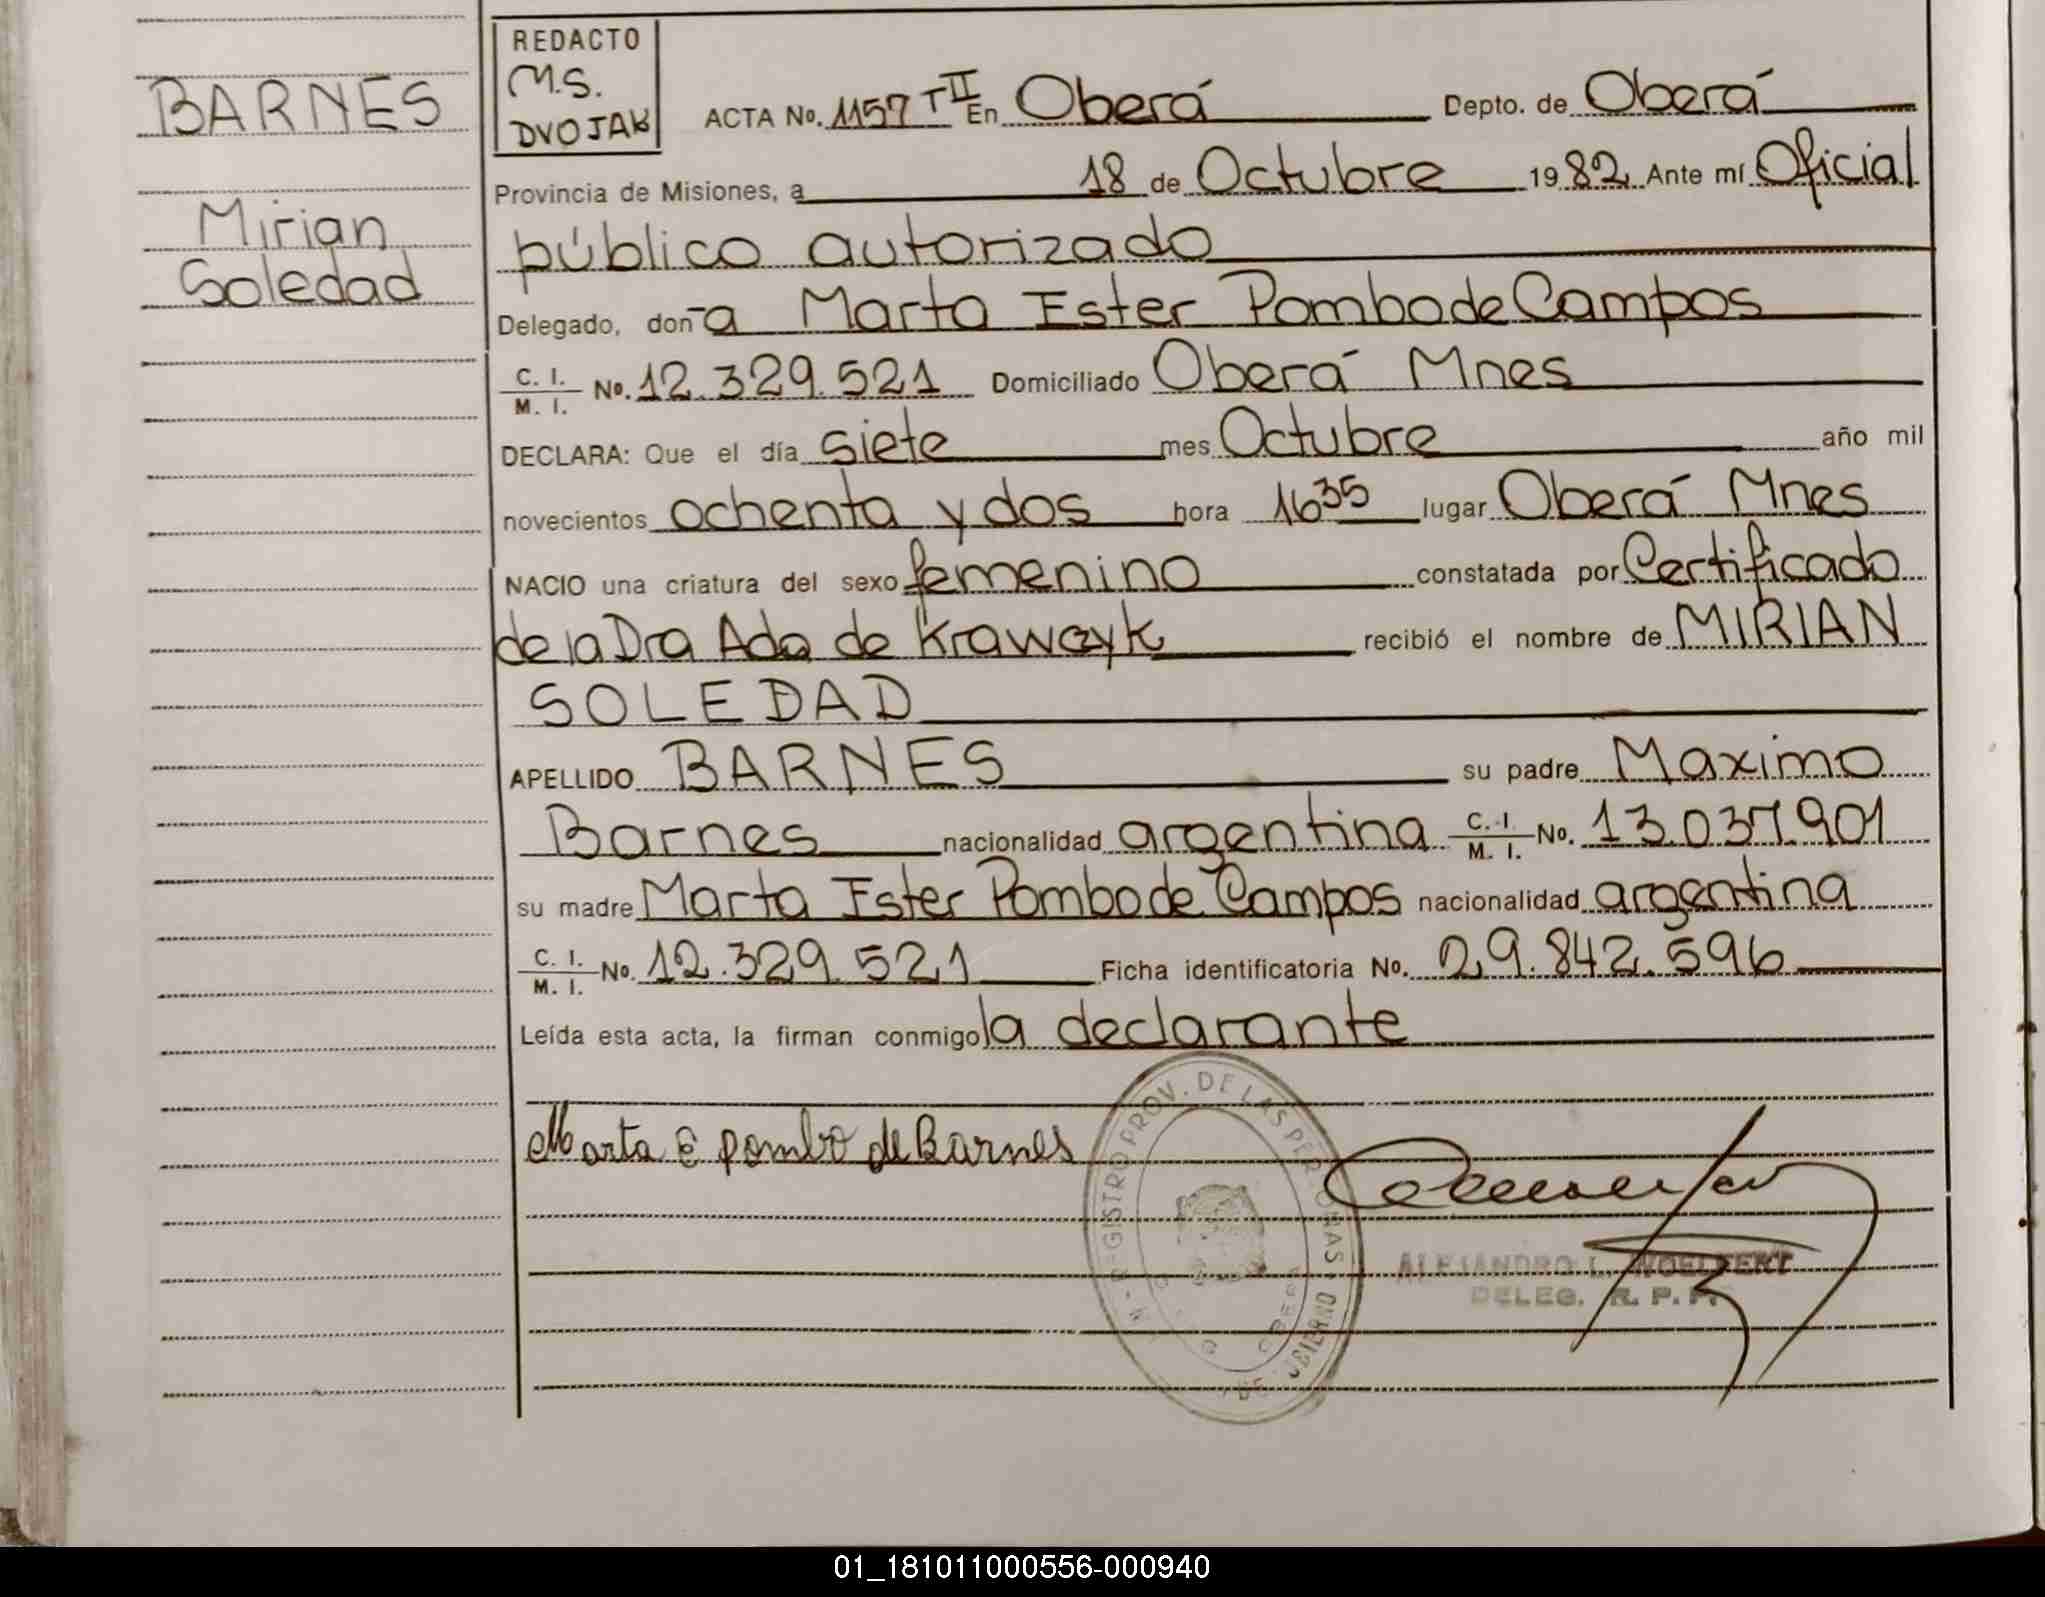 BARNES
Mirian
Soledad
REDACTO
M.S.
DVOJAK
ACTA No. 1157 TII En Oberá Depto. de Oberá
Provincia de Misiones, a 18 de Octubre 1982 Ante mí Oficial
público autorizado
Delegado, don a Marta Ester Pombo de Campos
C. I. / M. I. No. 12.329.521 Domiciliado Oberá Mnes
DECLARA: Que el día siete mes Octubre año mil
novecientos ochenta y dos hora 16 35 lugar Oberá Mnes
NACIO una criatura del sexo femenino constatada por Certificado
de la Dra Ada de Krawczyk recibió el nombre de MIRIAN
SOLEDAD
APELLIDO BARNES su padre Maximo
Barnes nacionalidad argentina C. I. / M. I. No. 13.037.901
su madre Marta Ester Pombo de Campos nacionalidad argentina
C. I. / M. I. No. 12.329.521 Ficha identificatoria No. 29.842.596
Leída esta acta, la firman conmigo la declarante
Marta E pombo de Barnes
REGISTRO PROV. DE LAS PERSONAS
ALEJANDRO L. WOELFERT
DELEG. R. P. P.
01_181011000556-000940